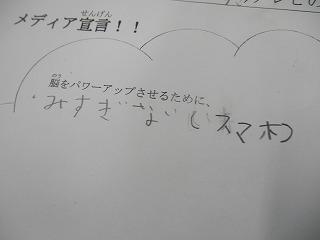 せんげん
メディア宣言！！
のう
脳をパワーアップさせるために、
みすぎない(スマホ)